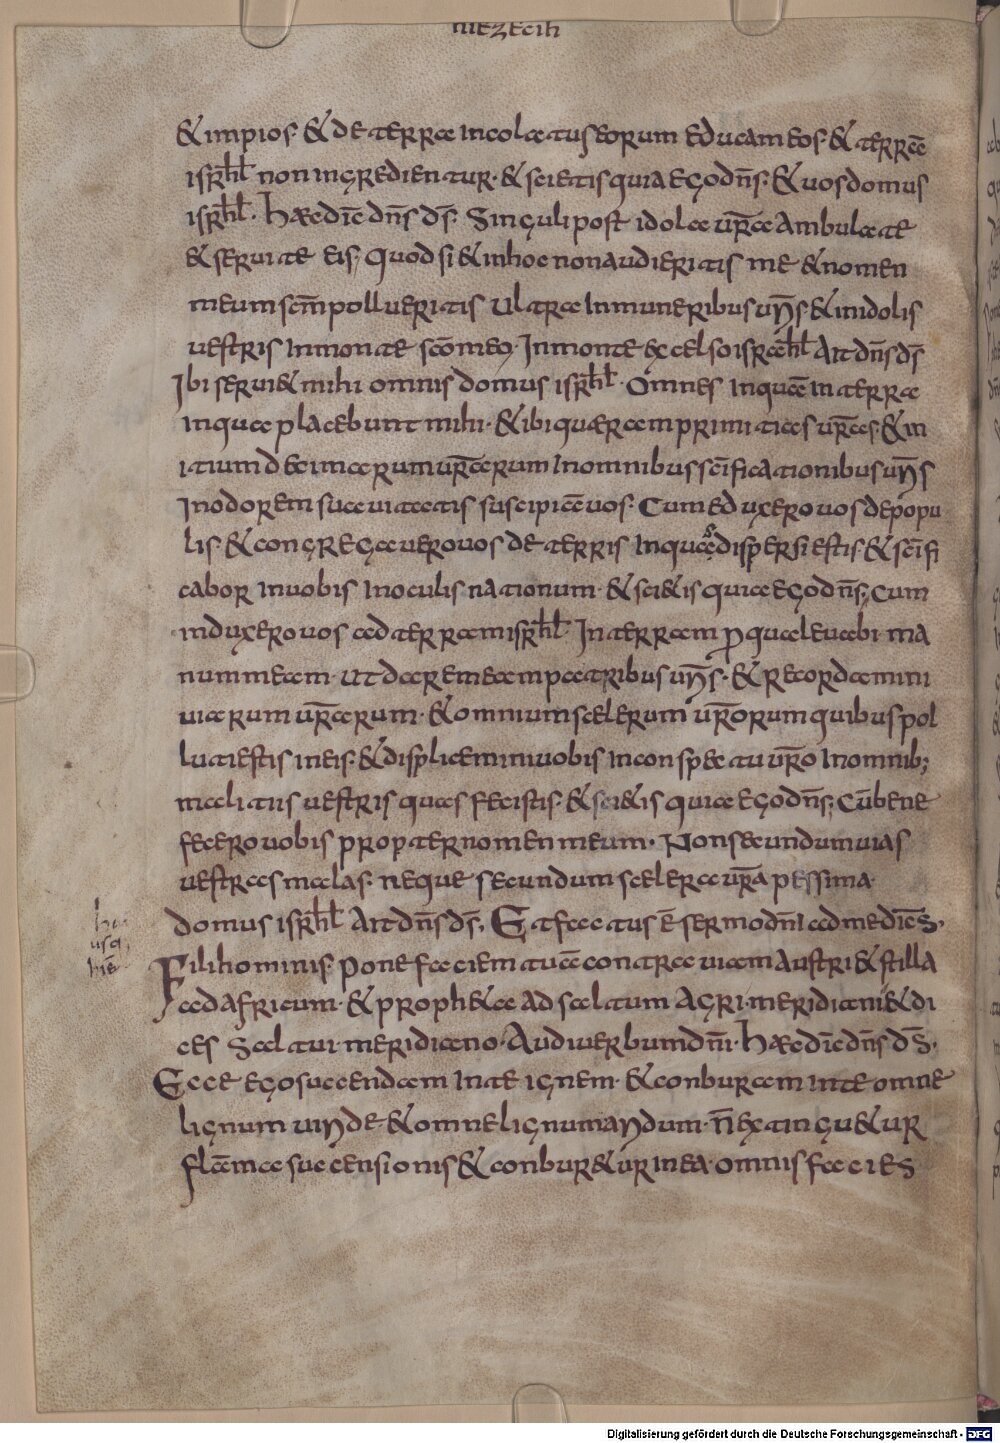 hiezecih
& impios· & de terra incolatus eorum educam eos· & terrā
isrhl non ingredientur· & scietis quia ego dn̄s· & vos domus
isrhl· haec dīc dn̄s ds̄· Singuli post idola ur̄a ambulate
& servite eis; quod si & in hoc non audieritis me & nomen
meum scm̄ pollueritis ultra in muneribus urīs· & in idolis
vestris in monte scō meo· In monte excelso israhl ait dn̄s ds̄
Ibi servi& mihi omnis domus isrhl· omnes inquā in terra
in qua placebunt mihi· & ibi quaeram primitias ur̄as· & in
itium decimarum ur̄arum in omnibus scīficationibus urīs
In odorem suavitatis suscipiā vos· Cum eduxero vos de popu
lis· & congregavero vos de terris in quas dispersi estis· & scīfi
cabor in vobis in oculis nationum· & sci&is quia ego dn̄s; Cum
induxero vos ad terram isrhl· In terram p̄ qua levabi ma
num meam· ut darem eam patribus urīs· & recordamini
viarum ur̄arum· & omnium scelerum ur̄orum quibus pol
luti estis in eis· & displicemini vobis in conspectu ur̄o in omnib;
malitiis vestris quas fecistis· & sci&is quia ego dn̄s; Cūbene
fecero vobis propter nomen meum· Non secundum vias
vestras malas· neque secundum scelera ur̄a pessima·
domus isrhl ait dn̄s ds̄; Et factus ē sermo dn̄i ad me diēs·
usq
Fili hominis· pone faciem tuā contra viam austri & stilla
ad africum· & proph&a ad saltum agri meridiani & di
ces saltui meridiano· Audi verbum dn̄i· haec dīc dn̄s ds̄·
Ecce ego succendam in te ignem· & conburam in te omne
lignum viride· & omne lignum aridum· n̄ extingu&ur
flāma succensionis & conbur&ur in ea· omnis facies
Digitalisierung gefördert durch die Deutsche Forschungsgemeinschaft - DFG